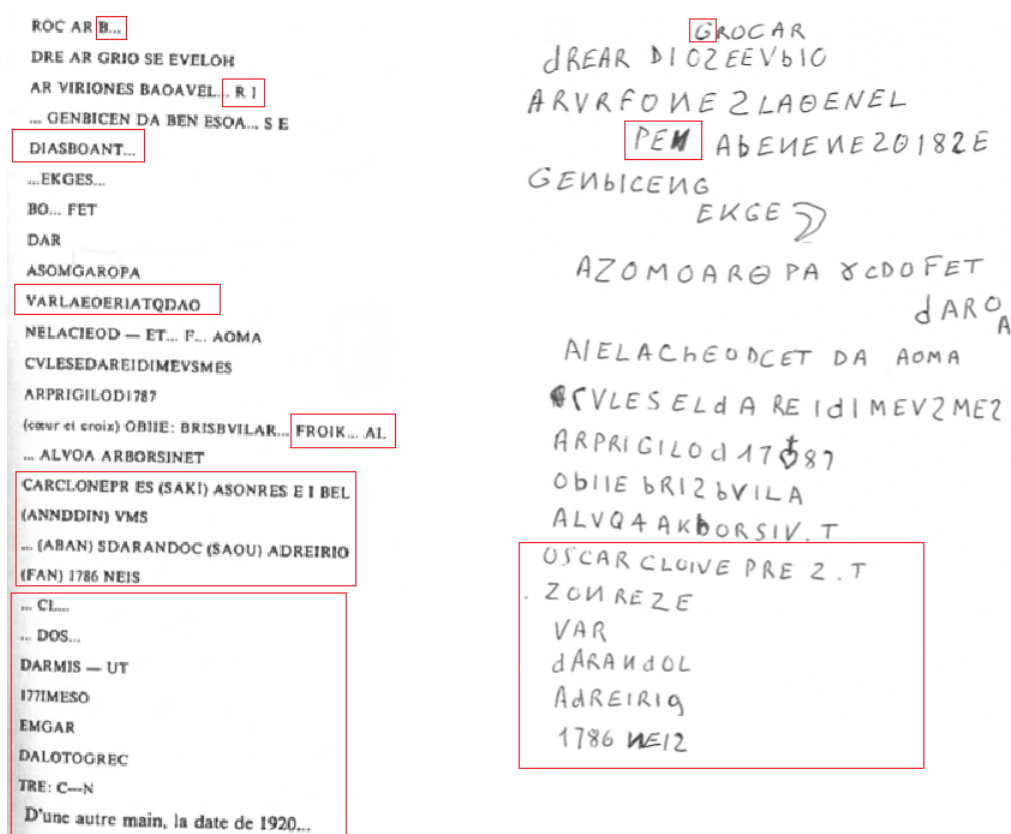 ROC AR B...
DRE AR GRIO SE EVELOH
AR VIRIONES BAOAVEL... R I
... GENBICEN DA BEN ESOA... S E
DIASBOANT...
...EKGES...
BO... FET
DAR
ASOMGAROPA
VARLAEOERIATQDAO
NELACIEOD — ET... F... AOMA
CVLESEDAREIDIMEVSMES
ARPRIGILOD1787
(cœur et croix) OBIIE: BRISBVILAR... FROIK... AL
... ALVOA ARBORSINET
CARCLONEPR ES (SAKI) ASONRES E I BEL
(ANNDDIN) VMS
... (ABAN) SDARANDOC (SAOU) ADREIRIO
(FAN) 1786 NEIS
... CI.....
... DOS...
DARMIS — UT
177IMESO
EMGAR
DALOTOGREC
TRE: C---N
D'une autre main, la date de 1920...
GROCAR
dREAR DIOZEEVbIO
ARVRFONE2LAOENEL
PEN AbENENE20182E
GENbICENG
EKGE
AZOMOARΘPA ɣCDOFET
dAROA
AIELAChEODCET DA AOMA
CVLESELdAREIdIMEV2ME2
ARPRIGILOd 1787
ObIIE bRI2bVILA
ALVQ4AKbORSIV.T
OSCARCLOIVE PRE 2.T
ZONREZE
VAR
dARANdOL
AdREIRIg
1786 NEI2